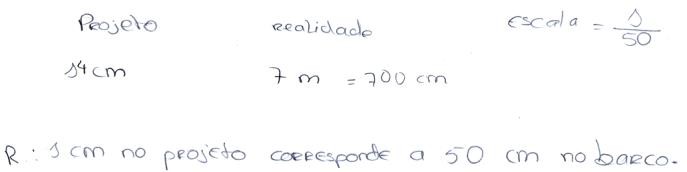 Projeto realidade escala = 1/50
14 cm 7 m = 700 cm
R: 1 cm no projeto corresponde a 50 cm no barco.